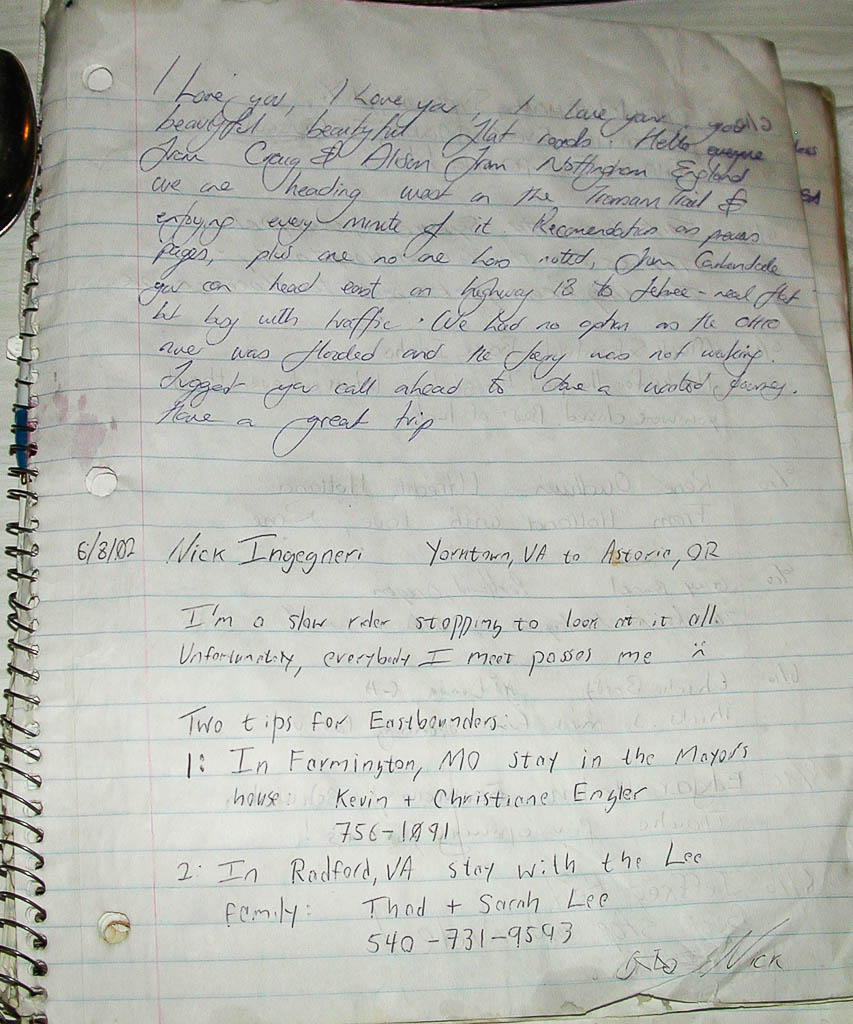 I Love you, I Love you, I love you. you
beautyful beautyful flat roads. Hello everyone
from Craig & Alison from Nottingham England
we are heading west on the Transam Trail &
enjoying every minute of it. Recomendation as previous
pages, plus one no one has noted, from
you can head east on highway to Sebree - real flat
but busy with traffic. We had no option as the OHIO
river was flooded and the ferry was not working.
Suggest you call ahead to save a wasted journey.
Have a great trip
6/8/02 Nick Ingegneri Yorntown, VA to Astoria, OR
I'm a slow rider stopping to look at it all.
Unfortunately, everybody I meet passes me
Two tips for Eastbounders:
1: In Farmington, MO stay in the Mayors
house: Kevin + Christiane Engler
756-1891
2: In Radford, VA stay with the Lee
family: Thad + Sarah Lee
540-731-9593
Nick